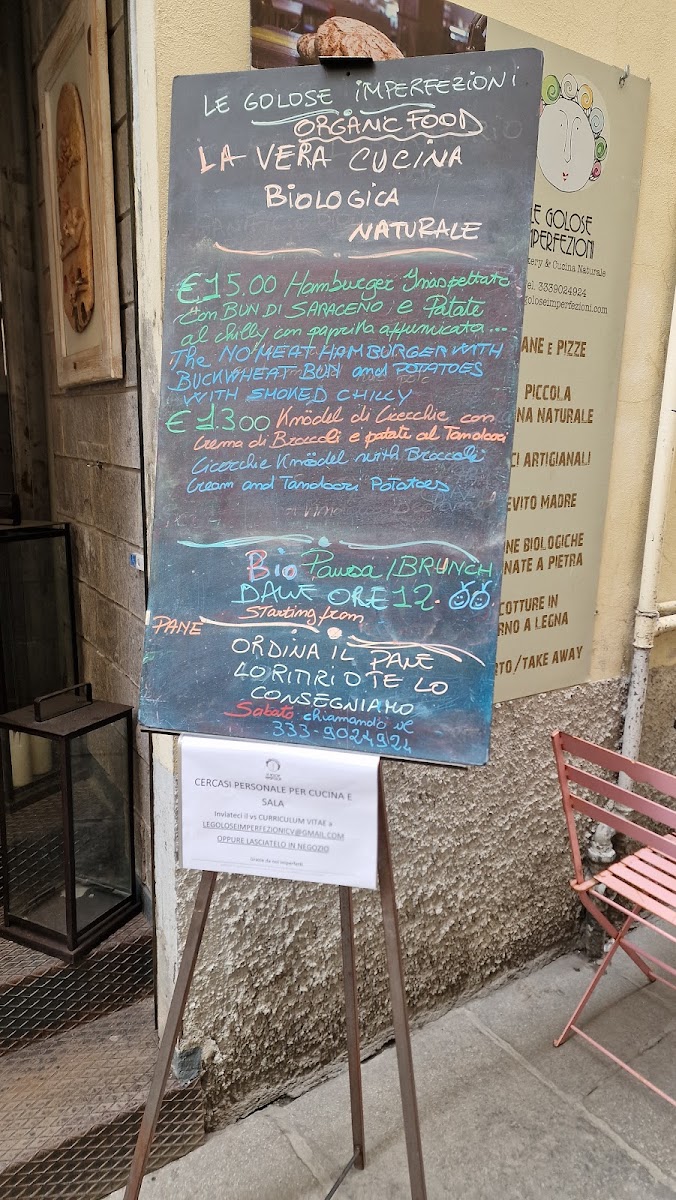 LE GOLOSE IMPERFEZIONI
ORGANIC FOOD
LA VERA CUCINA
BIOLOGICA
NATURALE
€15.00 Hamburger Inaspettato
con BUN DI SARACENO e Patate
al chilly con paprika affumicata...
The NO MEAT HAMBURGER WITH
BUCKWHEAT BUN and POTATOES
WITH SMOKED CHILLY
€ 13.00 Knödel di Cicerchie con
Crema di Broccoli e patate al Tandoori
Cicerchie Knödel with Broccoli
Cream and Tandoori Potatoes
Bio Pausa/BRUNCH
DALLE ORE 12.00
Starting from
PANE
ORDINA IL PANE
LO RITIRI O TE LO
CONSEGNIAMO
Sabato chiamando il
333-9024924
CERCASI PERSONALE PER CUCINA E
SALA
Inviateci il vs CURRICULUM VITAE a
LEGOLOSEIMPERFEZIONICV@GMAIL.COM
OPPURE LASCIATELO IN NEGOZIO
LE GOLOSE
IMPERFEZIONI
ery & Cucina Naturale
el. 3339024924
goloseimperfezioni.com
ANE e PIZZE
PICCOLA
NA NATURALE
CI ARTIGIANALI
EVITO MADRE
NE BIOLOGICHE
NATE A PIETRA
COTTURE IN
RNO A LEGNA
RTO/TAKE AWAY